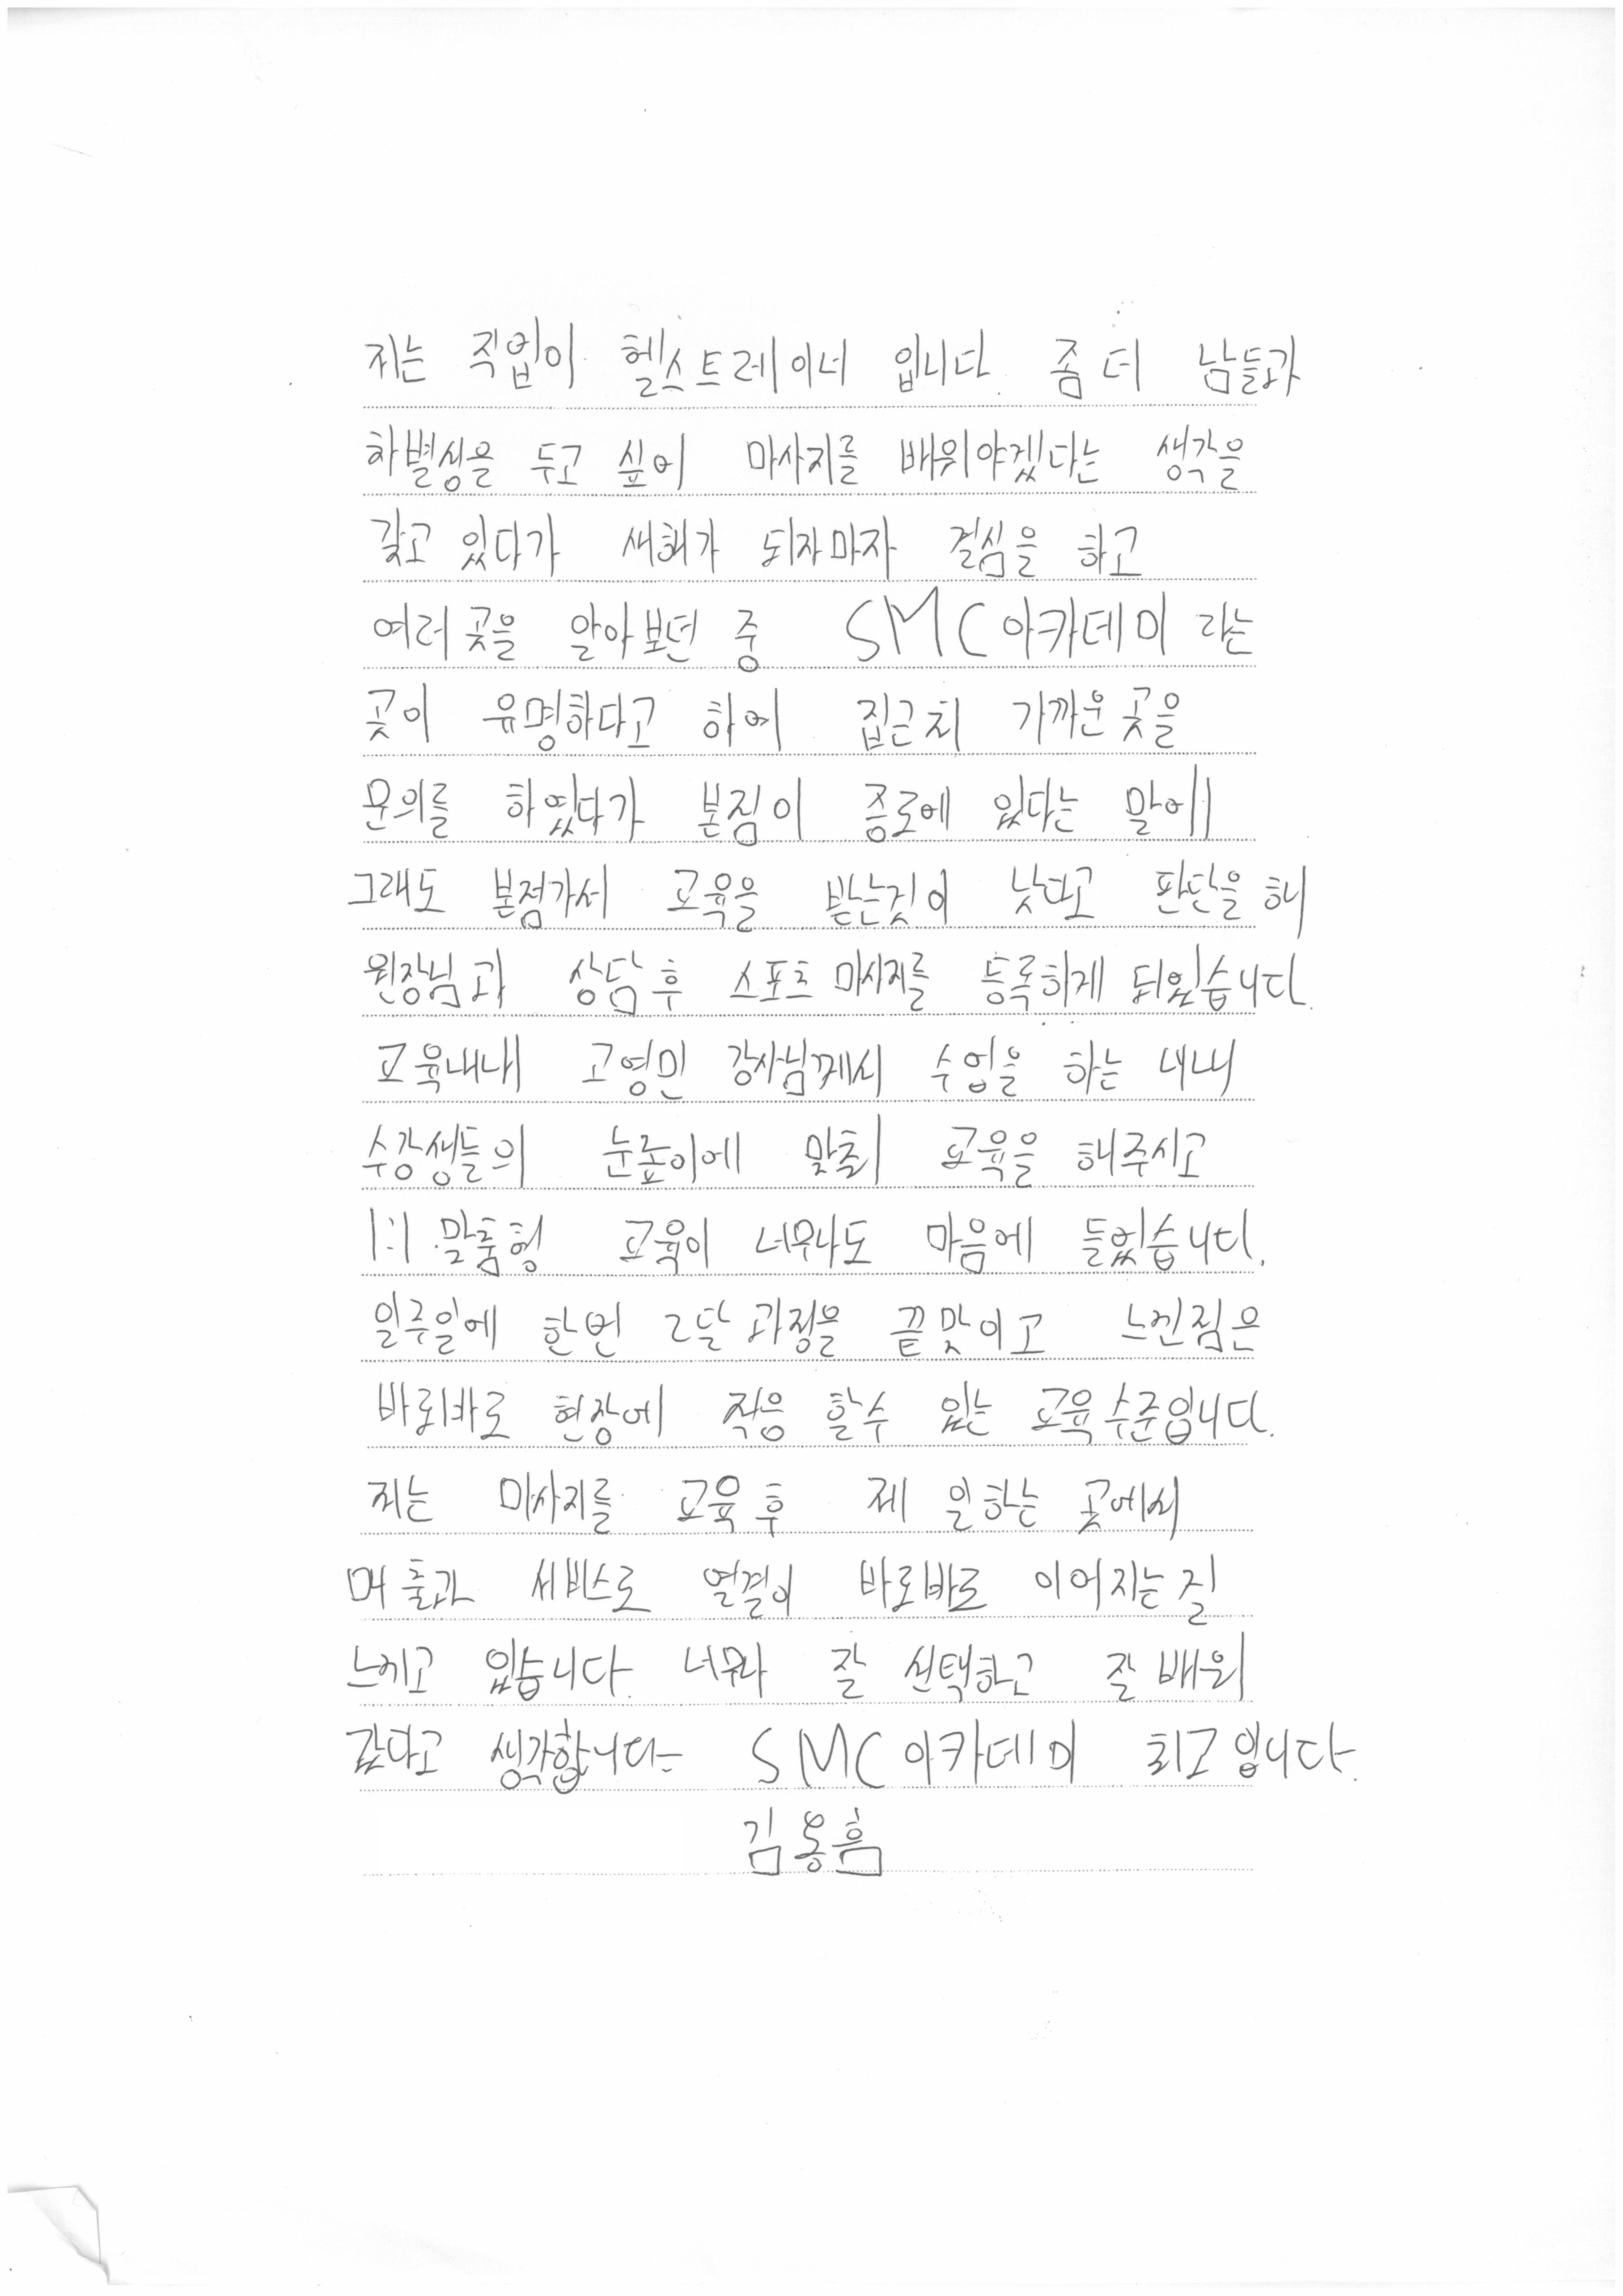 저는 직업이 헬스트레이너 입니다. 좀 더 남들과
차별성을 두고 싶어 마사지를 배워야겠다는 생각을
갖고 있다가 새해가 되자마자 결심을 하고
여러곳을 알아보던 중 SMC아카데미 라는
곳이 유명하다고 하여 집근처 가까운곳을
문의를 하였다가 본점이 종로에 있다는 말에
그래도 본점가서 교육을 받는것이 낫다고 판단을 해
원장님과 상담후 스포츠 마사지를 등록하게 되었습니다.
교육내내 고영민 강사님께서 수업을 하는 내내
수강생들의 눈높이에 맞춰 교육을 해주시고
1:1 맞춤형 교육이 너무나도 마음에 들었습니다.
일주일에 한번 2달 과정을 끝맞이고 느낀점은
바로바로 현장에 적응 할수 있는 교육수준입니다.
저는 마사지를 교육후 제 일하는 곳에서
매출과 서비스로 연결이 바로바로 이어지는걸
느끼고 있습니다. 너무나 잘 선택하고 잘 배워
갔다고 생각합니다~ SMC아카데미 최고입니다.
김용흠